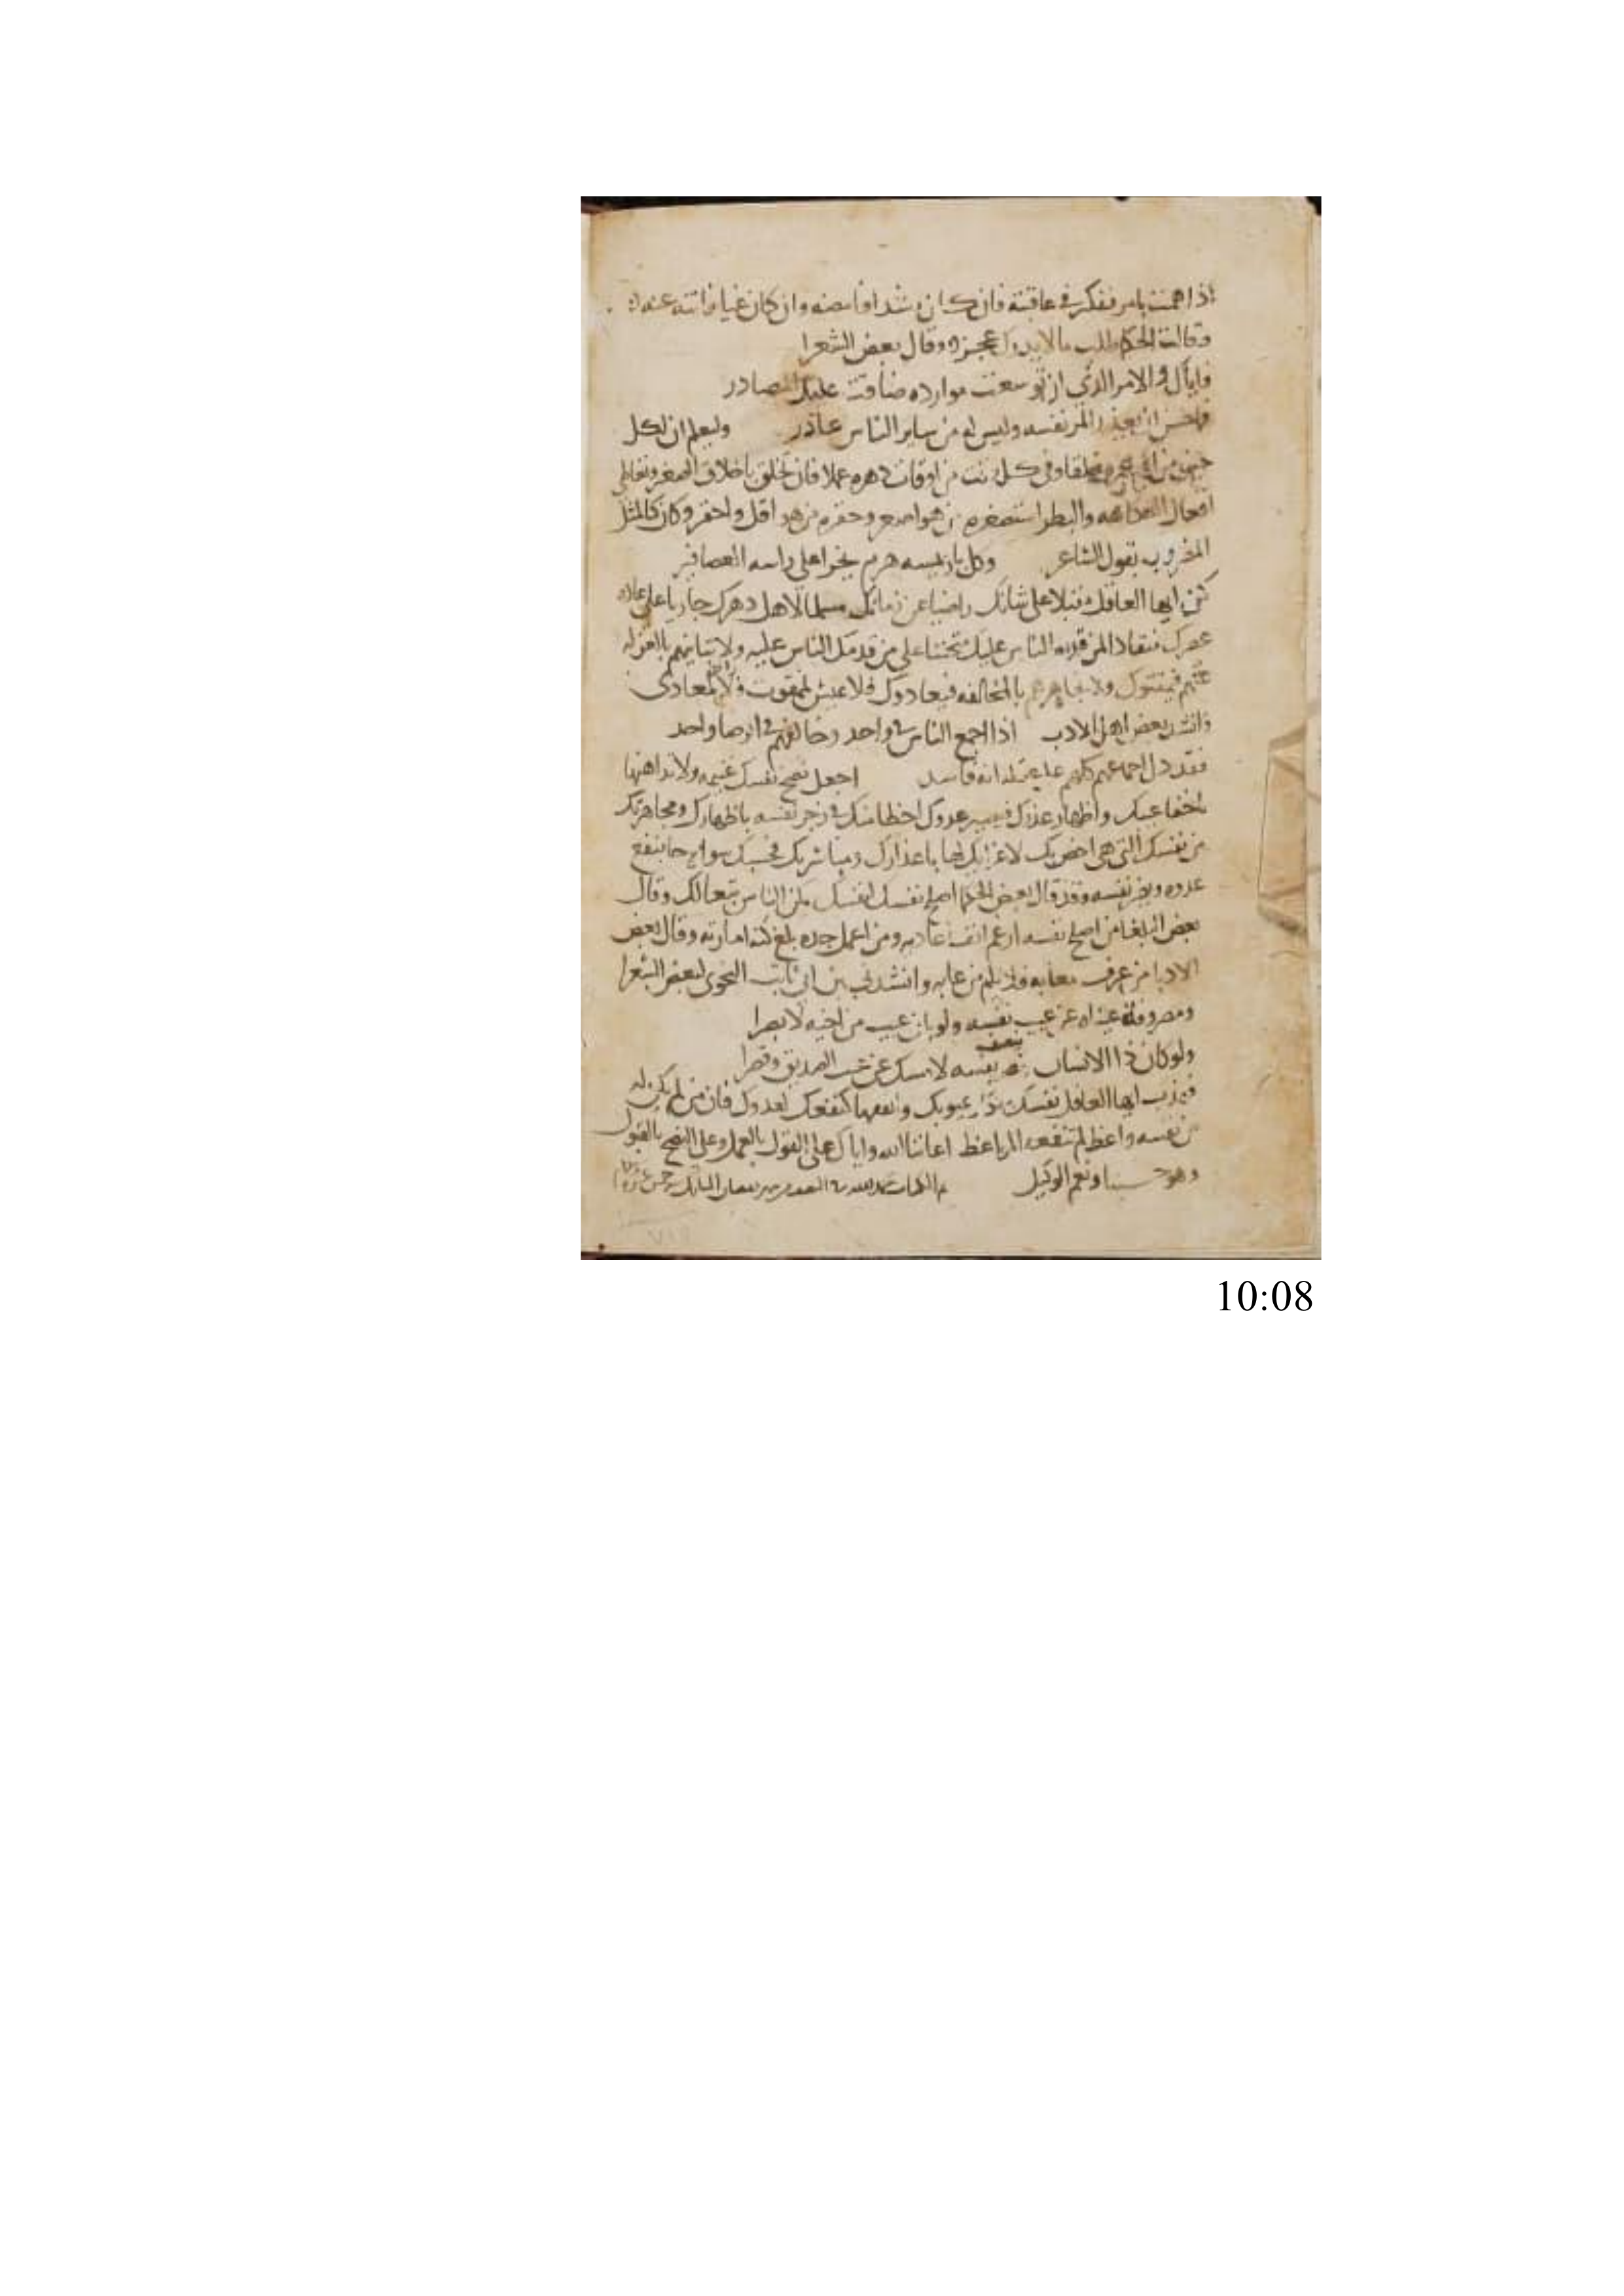 اذا هممت بامر ففكر في عاقبته فان كان رشدا فامضه وان كان غيا فانته عنه
وقالت الحكما طلب مالا يدرك عجز وقال بعض الشعرا
فاياك والامر الذي ان توسعت موارده ضاقت عليك المصادر
فما حسن ان يعذر المر نفسه وليس له من ساير الناس عاذر وليعلم ان لكل
حين من ايام عمره خلقا وفي كل وقت من اوقات دهره عملا فان تخلق باخلاق الصغر وتعاطى
افعال الفكاهه والبطر استصغره من هو اصغر وحقره من هو اقل واحقر وكان كالمثل
المضروب بقول الشاعر وكل باز يمسه هرم يخرا على راسه العصافير
كن ايها العاقل مقبلا على شانك راضيا عن زمانك سلما لاهل دهرك جاريا على عاده
عصرك منقادا لمن قدمه الناس عليك متحننا على من قدمك الناس عليه ولا تباينهم بالعزله
عنهم فيمقتوك ولا تجاهرهم بالمخالفه فيعادوك فلا عيش لممقوت ولا لمعادى
وانشد بعض اهل الادب اذا اجمع الناس في واحد وخالفهم في الرضا واحد
فقد دل اجماعهم كلهم على عقله انه فاسد اجعل نصح نفسك غنيمه ولا تداهنها
باخفا عيبك واظهار عذرك فيصير عدوك احظا منك في زجر نفسه باظهارك ومجاهرتك
من نفسك التي هي اخص بك لاغرايك لها باعذارك فحسبك سوا رجل ينفع
عدوه ويضر نفسه وقد قال بعض الحكما اصلح نفسك لنفسك يكن الناس تبعا لك وقال
بعض البلغا من اصلح نفسه ارغم انف اعاديه ومن اعمل جده بلغ كنه امانيه وقال بعض
الادبا من عرف معابه فلا يلم من عابه وانشدني بن ابي ثابت النحوى لبعض الشعرا
ومصروفة عيناه عن عيب نفسه ولو بان عيب من اخيه لابصرا
ولو كان ذا الانسان ينصف نفسه لامسك عن عيب الصديق وقصرا
فهذب ايها العاقل نفسك بافكار عيوبك وانفعها كنفعك لعدوك فان من لم يكن له
من نفسه واعظ لم تنفعه المواعظ اعاننا الله واياك على القول بالعمل وعلى النصح بالقبول
وهو حسبنا ونعم الوكيل
10:08